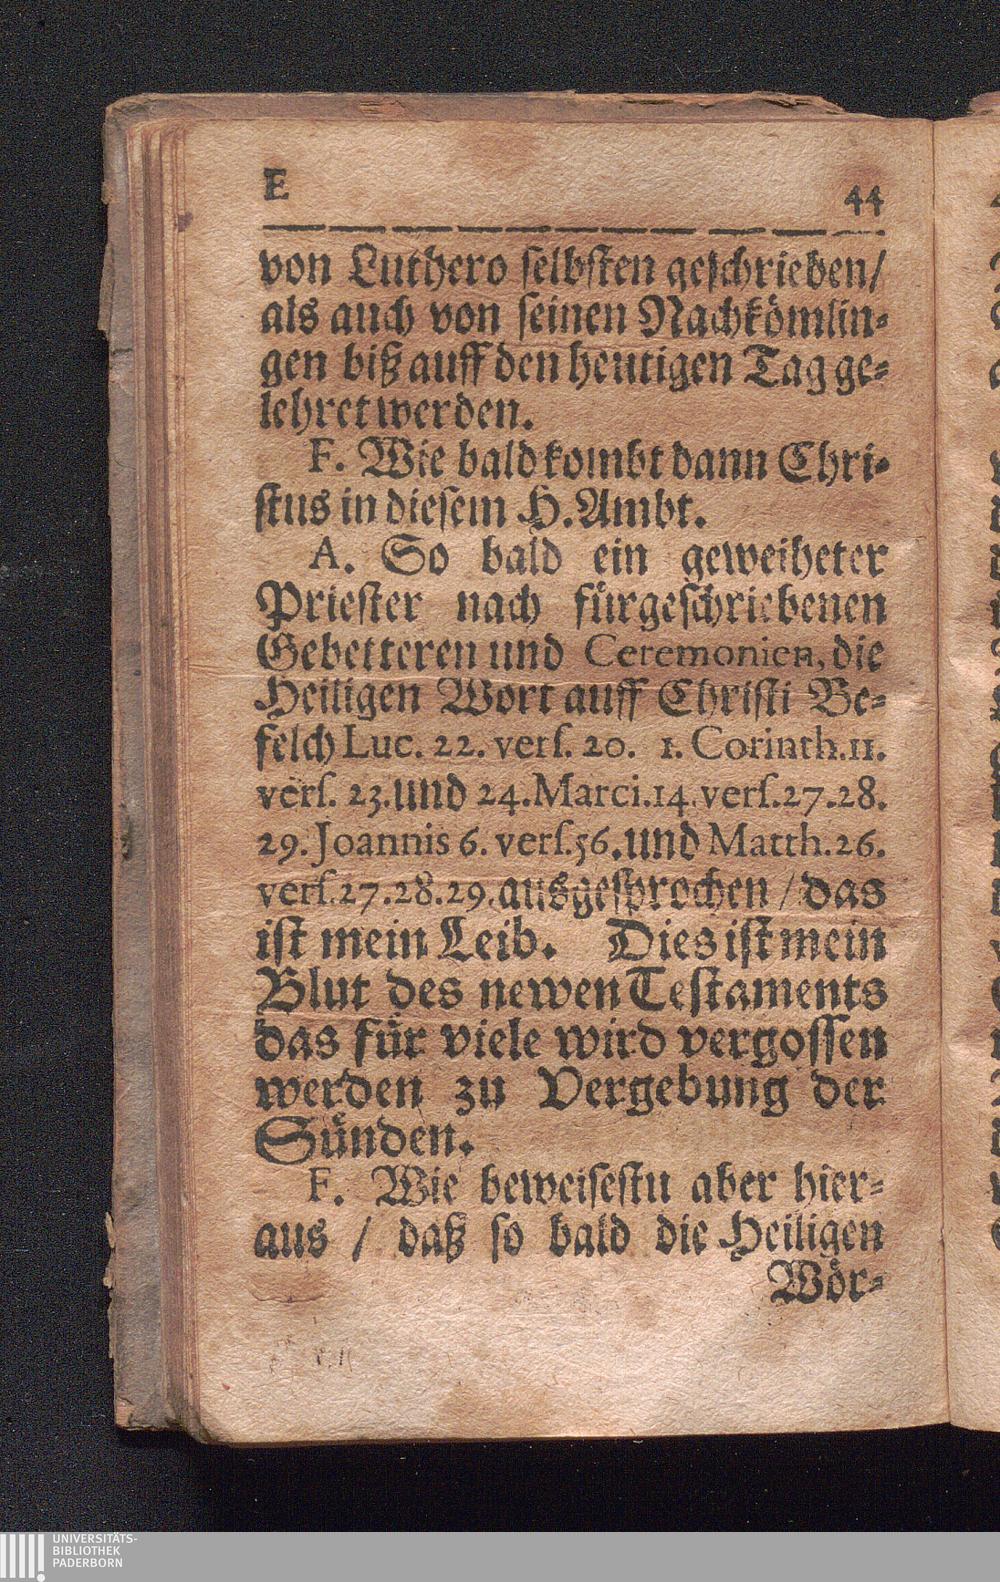 E 44
von Luthero selbsten geschrieben/
als auch von seinen Nachkömlin⸗
gen biß auff den heutigen Tag ge⸗
lehret werden.
F. Wie bald kombt dann Chri⸗
stus in diesem H. Ambt.
A. So bald ein geweiheter
Priester nach fürgeschriebenen
Gebetteren und Ceremonien, die
Heiligen Wort auff Christi Be⸗
felch Luc. 22. vers. 20. 1. Corinth. 11.
vers. 23. und 24. Marci. 14. vers. 27. 28.
29. Joannis 6. vers. 56. und Matth. 26.
vers. 27. 28. 29. ausgesprochen / das
ist mein Leib. Dies ist mein
Blut des newen Testaments
das für viele wird vergossen
werden zu Vergebung der
Sünden.
F. Wie beweisestu aber hier⸗
aus / daß so bald die Heiligen
Wör⸗
UNIVERSITÄTS-
BIBLIOTHEK
PADERBORN